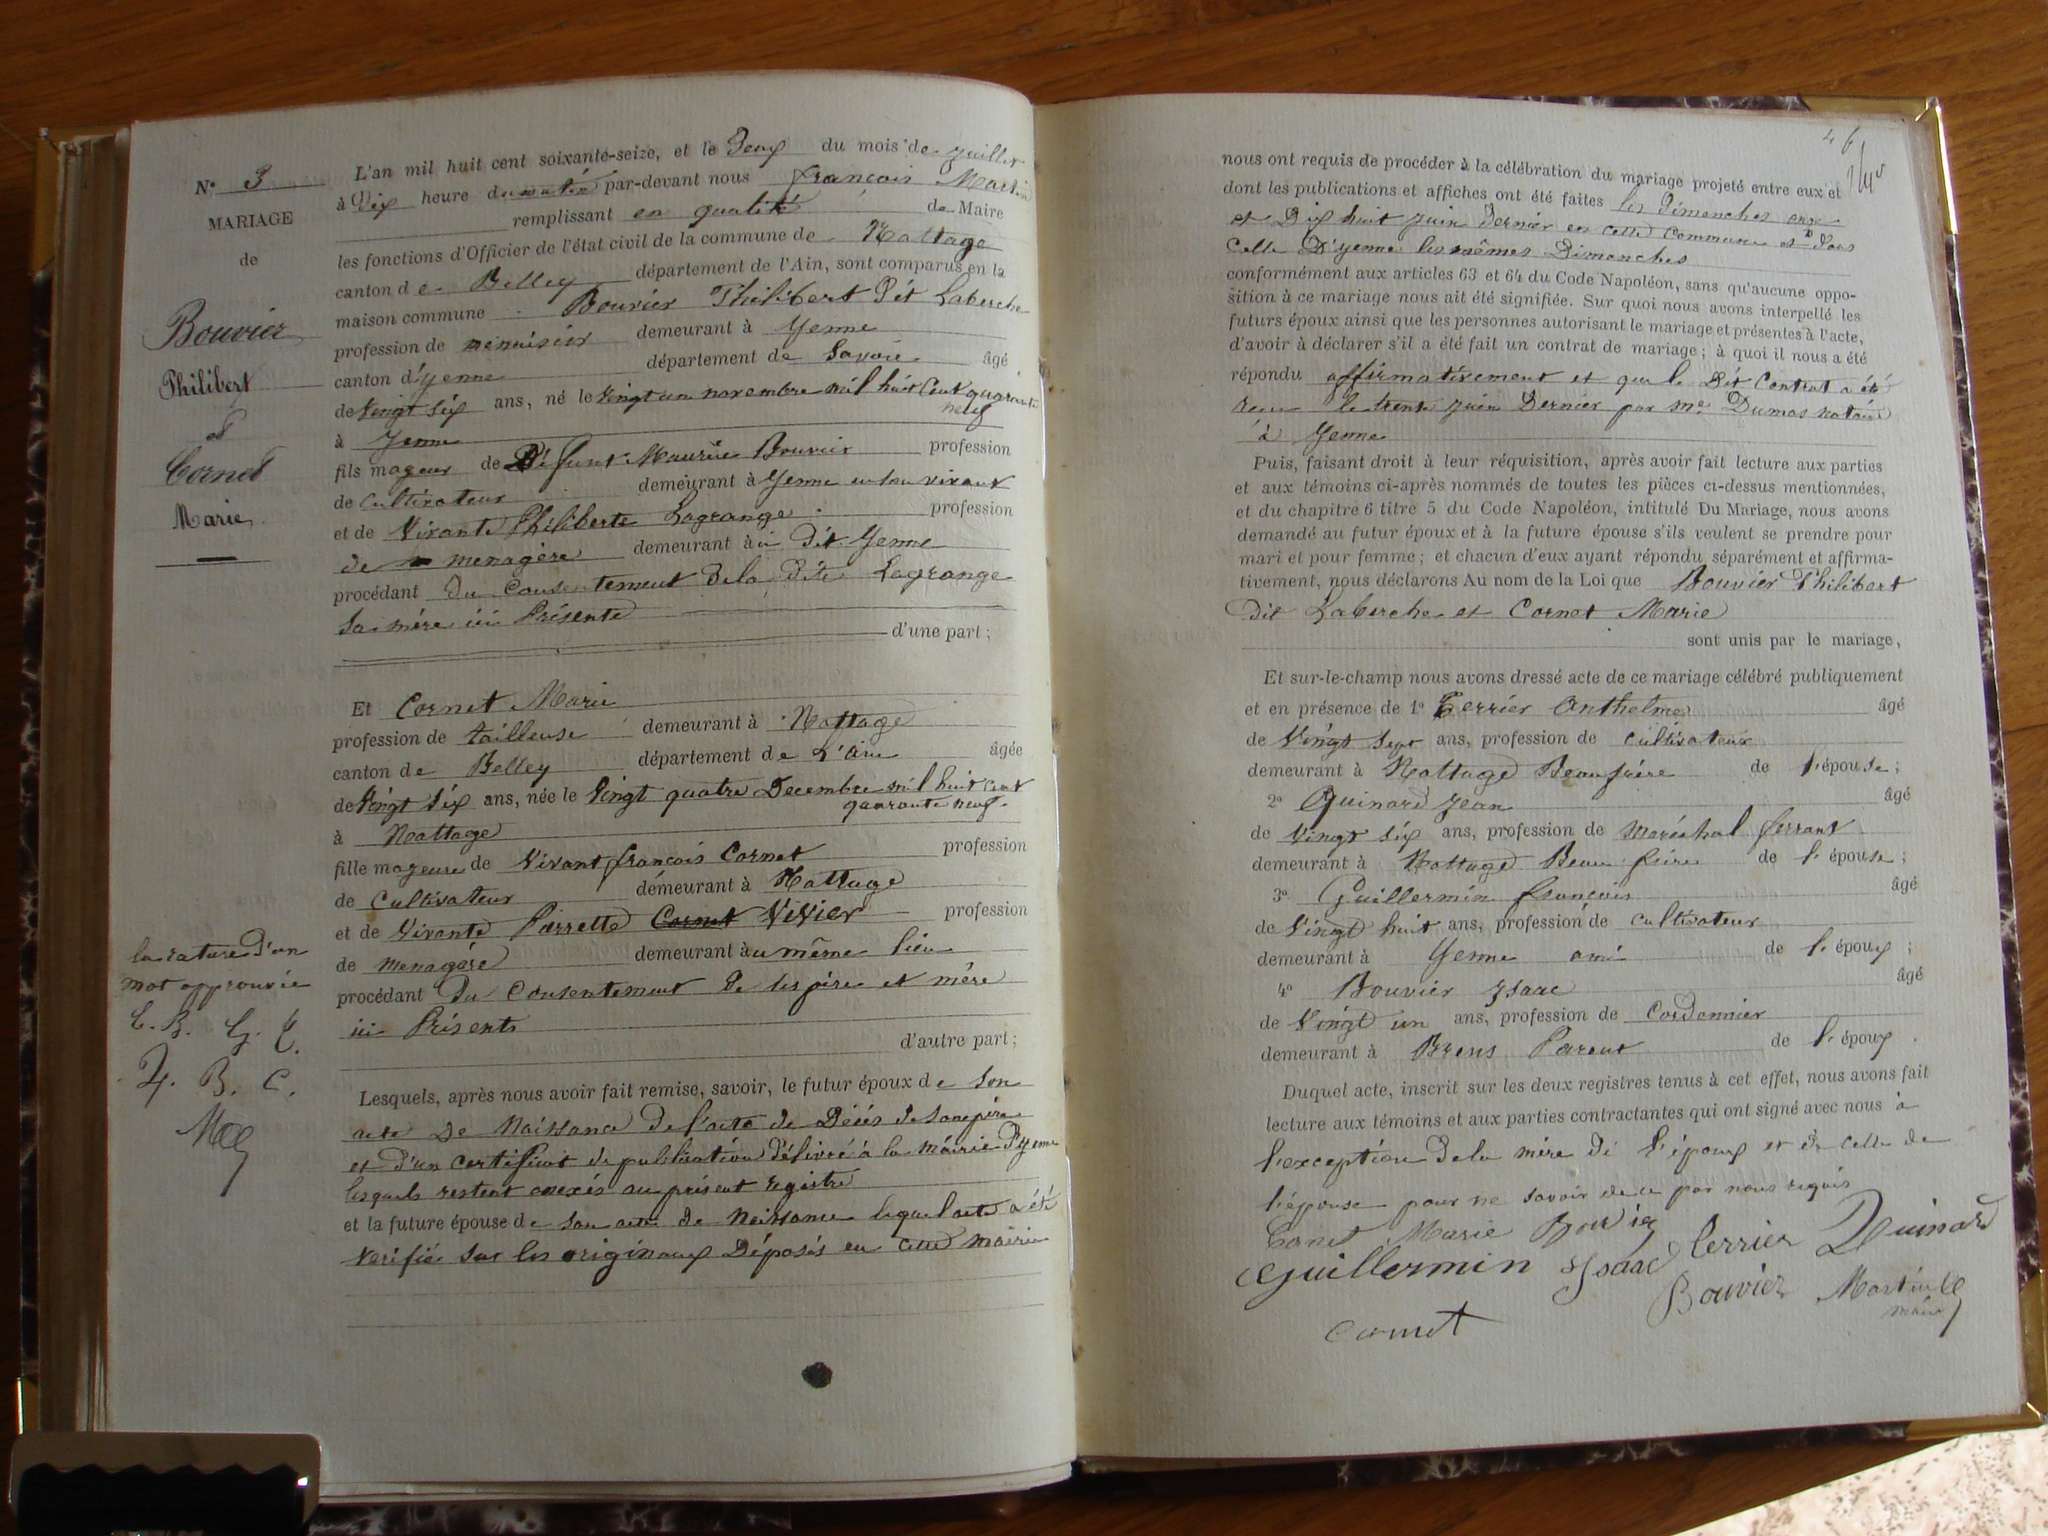 N° 3
MARIAGE
de
Bouvier
Philibert
et
Cornet
Marie
L'an mil huit cent soixante-seize, et le Deux du mois de juillet
à Dix heure du matin par-devant nous françois Martin
remplissant en qualité de Maire
les fonctions d'Officier de l'état civil de la commune de Nattage
canton de Belley département de l'Ain, sont comparus en la
maison commune Bouvier Philibert Dit Laberche
profession de menuisier demeurant à Yenne
canton d'yenne département de Savoie âgé
de Vingt six ans, né le Vingt un novembre mil huit Cent quarante
neuf
à Yenne
fils mageur de Défunt Maurice Bouvier profession
de Cultivateur demeurant à Yenne en son vivant
et de Vivante Philiberte Lagrange profession
de menagère demeurant au Dit Yenne
procédant du Consentement de la dite Lagrange
Sa mère ici Présente
d'une part ;
Et Cornet Marie
profession de tailleuse demeurant à Nattage
canton de Belley département de L'ain âgée
de Vingt Six ans, née le Vingt quatre Decembre mil huit Cent
quarante neuf
à Nattage
fille mageure de Vivant françois Cornet profession
de Cultivateur demeurant à Nattage
et de Vivante Pierrette Cornet Vivier profession
de menagére demeurant au même lieu
procédant Du Consentement de ses père et mère
ici Présents
d'autre part ;
la rature d'un
mot approuvée
C. B. G. T.
J. B. C.
Lesquels, après nous avoir fait remise, savoir, le futur époux de son
acte de Naissance de l'acte de Décès de son père
et d'un certificat de publication délivré à la mairie D'yenne
lesquels restent anexés au présent registre
et la future épouse de son acte de Naissance lequel acte a été
Vérifié sur les originaux Déposés en cette mairie
46
nous ont requis de procéder à la célébration du mariage projeté entre eux et
dont les publications et affiches ont été faites les Dimanches onze
et Dix huit juin Dernier en cette Commune et Dans
Celle D'yenne les mêmes Dimanches
conformément aux articles 63 et 64 du Code Napoléon, sans qu'aucune oppo-
sition à ce mariage nous ait été signifiée. Sur quoi nous avons interpellé les
futurs époux ainsi que les personnes autorisant le mariage et présentes à l'acte,
d'avoir à déclarer s'il a été fait un contrat de mariage ; à quoi il nous a été
répondu affirmativement et que le Dit Contrat a été
recu le trente juin Dernier par me Dumas notaire
à Yenne
Puis, faisant droit à leur réquisition, après avoir fait lecture aux parties
et aux témoins ci-après nommés de toutes les pièces ci-dessus mentionnées,
et du chapitre 6 titre 5 du Code Napoléon, intitulé Du Mariage, nous avons
demandé au futur époux et à la future épouse s'ils veulent se prendre pour
mari et pour femme ; et chacun d'eux ayant répondu séparément et affirma-
tivement, nous déclarons Au nom de la Loi que Bouvier Philibert
Dit Laberche et Cornet Marie
sont unis par le mariage,
Et sur-le-champ nous avons dressé acte de ce mariage célébré publiquement
et en présence de 1° Terrier Anthelme âgé
de Vingt sept ans, profession de cultivateur
demeurant à Nattage Beaufrère de l'épouse ;
2° Guinard Jean âgé
de Vingt six ans, profession de maréchal ferrant
demeurant à Nattage Beau frère de l'épouse ;
3° Guillermin françois âgé
de Vingt huit ans, profession de cultivateur
demeurant à Yenne ami de l'époux ;
4° Bouvier Isaac âgé
de Vingt un ans, profession de Cordonnier
demeurant à Brens Parent de l'époux
Duquel acte, inscrit sur les deux registres tenus à cet effet, nous avons fait
lecture aux témoins et aux parties contractantes qui ont signé avec nous à
l'exception de la mère de l'époux et de celle de
l'épouse pour ne savoir de ce par nous requis
Cornet Marie Bouvier Terrier Guinard
Guillermin Isaac Bouvier Martin
maire
Cornet